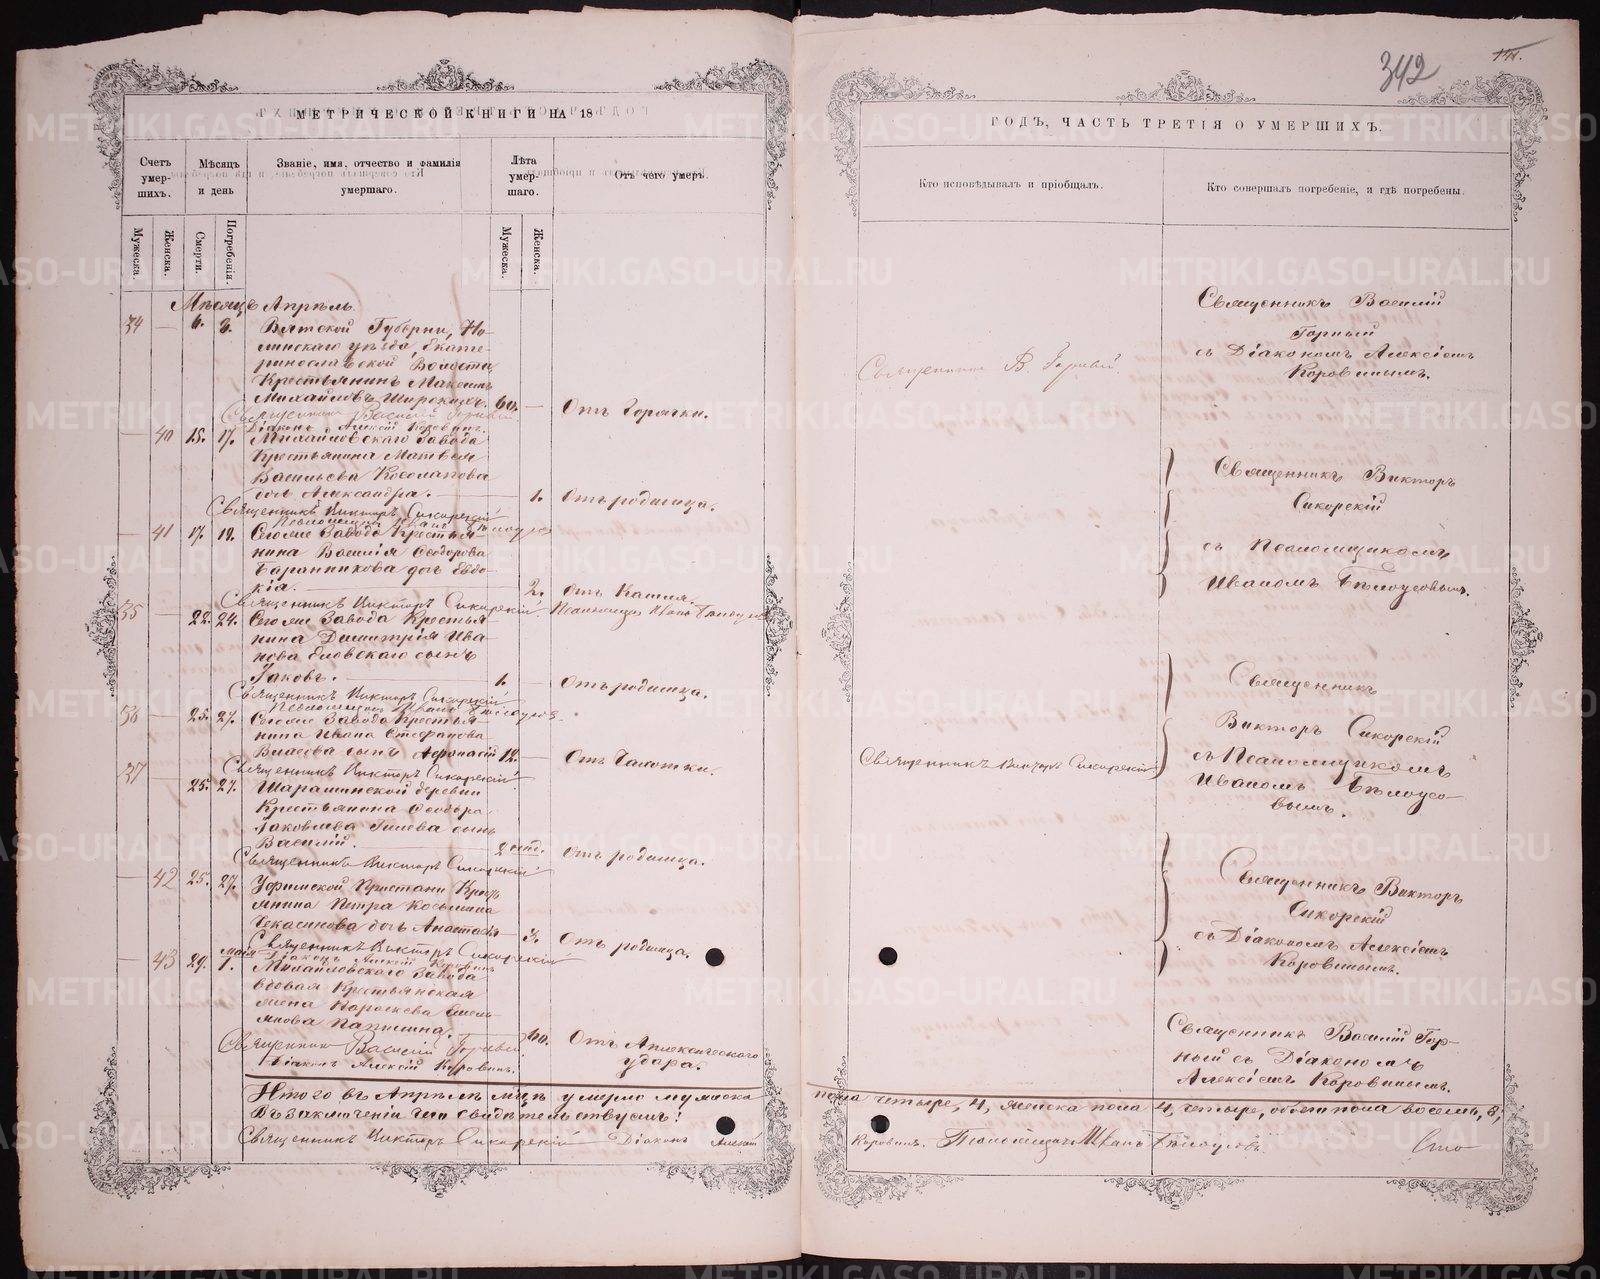 342
МЕТРИЧЕСКОЙ КНИГИ НА 18
ГОДЪ, ЧАСТЬ ТРЕТІЯ О УМЕРШИХЪ.
Счетъ умер-шихъ.
Мѣсяцъ и день
Званіе, имя, отчество и фамилія умершаго.
Лѣта умер-шаго.
Отъ чего умеръ.
Кто исповѣдывалъ и пріобщалъ.
Кто совершалъ погребеніе, и гдѣ погребены.
Мужеска.
Женска.
Смерти.
Погребенія.
Мужеска.
Женска.
Мѣсяцъ Апрѣль
34 — 6. 8. Вятской Губерніи, Но-
линскаго уѣзда, Екате-
ринославской Волости
Крестьянинъ Максимъ
Михайловъ Широкихъ. 60. — Отъ Горячки.
Священникъ Василій Горный
Діаконъ Алексій Коровинъ.
Священникъ В. Горный
Священникъ Василій
Горный
съ Діакономъ Алексіемъ
Коровинымъ.
— 40 15. 17. Михайловскаго Завода
Крестьянина Матвея
Васильева Косолапова
дочь Александра. — 1. Отъ родимца.
Священникъ Викторъ Сикорскій
Псаломщикъ Иванъ Бѣлоусовъ
Священникъ Викторъ
Сикорскій
съ Псаломщикомъ
Иваномъ Бѣлоусовымъ.
— 41 17. 19. Сегоже Завода Крестья-
нина Василія Ѳеодорова
Баранникова дочь Евдо-
кія. — 2. Отъ Кашля.
Священникъ Викторъ Сикорскій. Псаломщикъ Иванъ Бѣлоусовъ
35 — 22. 24. Сегоже Завода Крестья-
нина Димитрія Ива-
нова Еловскаго сынъ
Іаковъ. 1. — Отъ родимца.
Священникъ Викторъ Сикорскій
Псаломщикъ Иванъ Бѣлоусовъ.
Священникъ
Викторъ Сикорскій
съ Псаломщикомъ
Иваномъ Бѣлоусо-
вымъ.
36 — 25. 27. Сегоже Завода Крестья-
нина Ивана Стефанова
Власова сынъ Аѳанасій 12. — Отъ Чахотки.
Священникъ Викторъ Сикорскій
Священникъ Викторъ Сикорскій
37 25. 27. Шарашинской деревни
Крестьянина Ѳеодора
Іаковлева Гилева сынъ
Василій. 2 нед. Отъ родимца.
Священникъ Викторъ Сикорскій
— 42 25. 27. Уфимской Пристани Кресть
янина Петра Козьмина
Чекасинова дочь Анастасія 3. Отъ родимца.
Священникъ Викторъ Сикорскій
Діаконъ Алексій Коровинъ
Священникъ Викторъ
Сикорскій
съ Діакономъ Алексіемъ
Коровинымъ.
— 43 29. маія 1. Михайловскаго Завода
вдовая Крестьянская
жена Параскева Емель-
янова Папышина. 40. Отъ Аплексическаго
удара.
Священникъ Василій Горный
Діаконъ Алексій Коровинъ.
Священникъ Василій Гор-
ный съ Діакономъ
Алексіемъ Коровинымъ.
Итого въ Апрѣлѣ м-цѣ умерло мужеска пола четыре, 4, женска пола 4, четыре, обоего пола восемь, 8,
Въ заключеніи чего свидѣтельствуемъ:
Священникъ Викторъ Сикорскій Діаконъ Алексій Коровинъ. Псаломщикъ Иванъ Бѣлоусовъ.